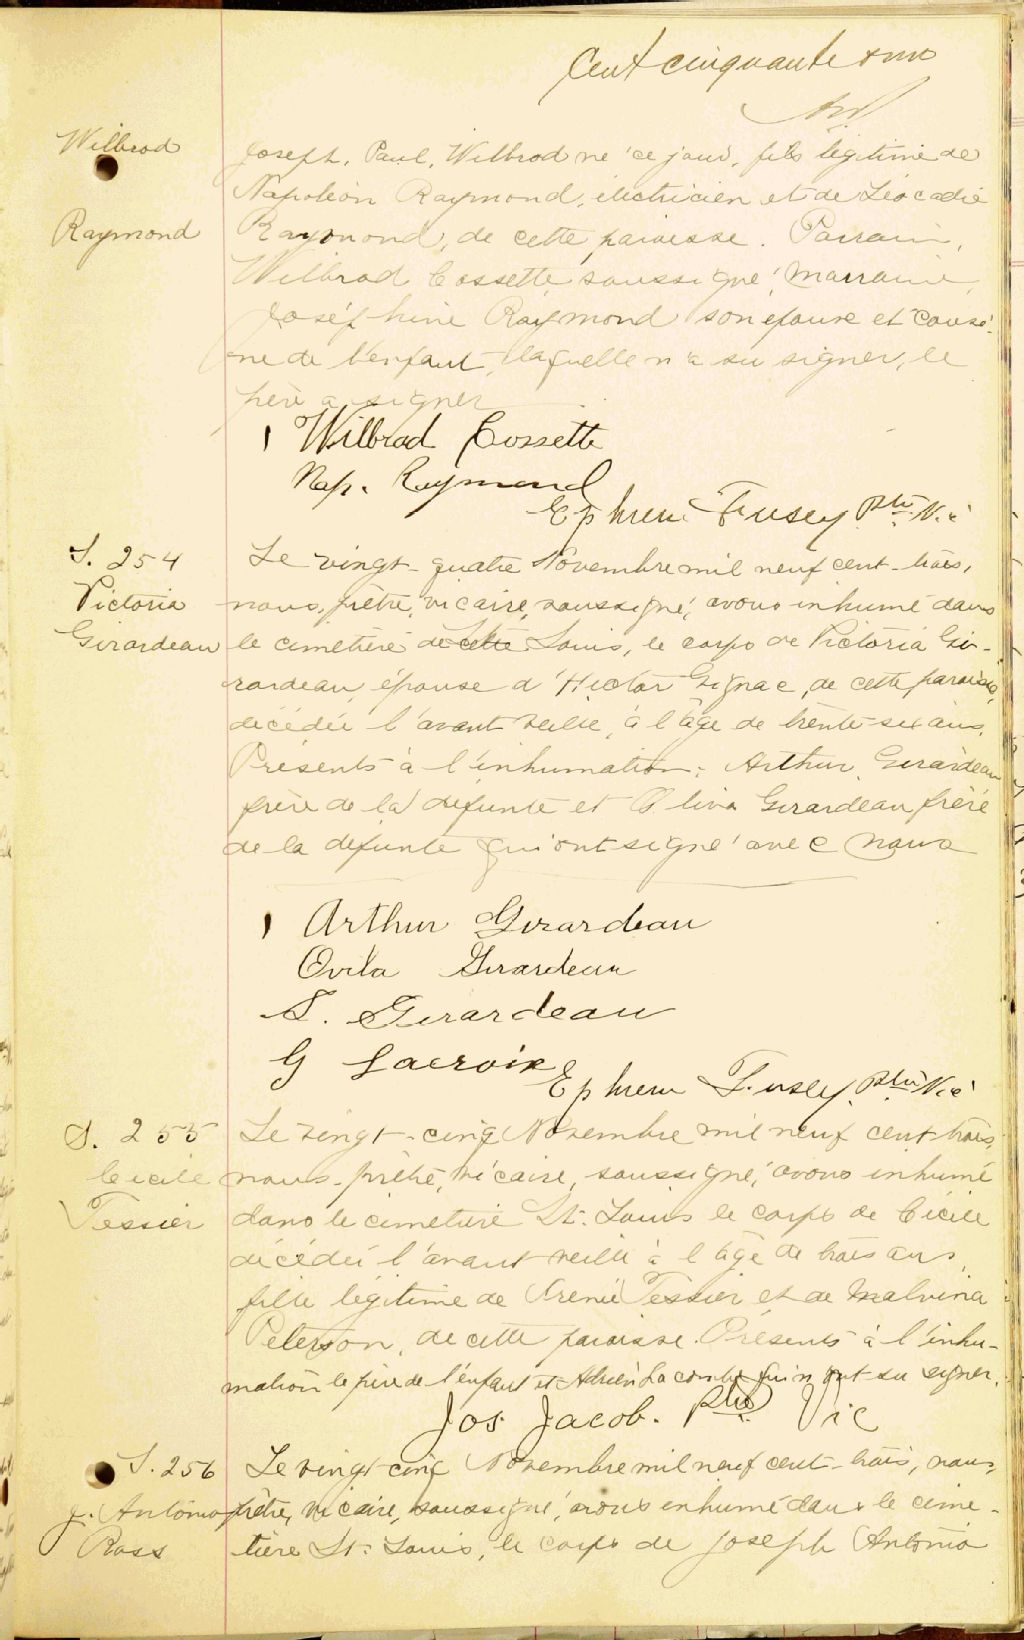 Cent cinquante & un
Wilbrod
Raymond
Joseph, Paul, Wilbrod né ce jour, fils légitime de
Napoléon Raymond, électricien et de Léocadie
Raymond, de cette paroisse. Parrain,
Wilbrod Cossette soussigné, marraine,
Joséphine Raymond son épouse et cousi-
ne de l'enfant, laquelle n'a su signer, le
père a signer
Wilbrod Cossette
Nap. Raymond
Ephrem Fusey Ptre Vic
S. 254
Victoria
Girardeau
Le vingt-quatre Novembre mil neuf cent-trois,
nous, prêtre, vicaire, soussigné, avons inhumé dans
le cimetière de cette Louis, le corps de Victoria Gir-
rardeau, épouse d'Hector Gignac, de cette paroisse,
décédée l'avant veille, à l'âge de trente-six ans.
Présents à l'inhumation: Arthur Girardeau
frère de la défunte et Oliva Girardeau frère
de la défunte qui ont signé avec nous
Arthur Girardeau
Ovila Girardeau
S. Girardeau
G Lacroix
Ephrem Fusey. Ptre Vic
S. 255
Cécile
Tessier
Le vingt-cinq Novembre mil neuf cent trois,
nous, prêtre, vicaire, soussigné, avons inhumé
dans le cimetière St. Louis le corps de Cécile
décédée l'avant veille à l'âge de trois ans,
fille légitime de Irenée Tessier et de Malvina
Peterson, de cette paroisse. Présents à l'inhu-
mation le père de l'enfant et Adrien Lacombe qui n'ont su signer.
Jos. Jacob. Ptre Vic
S. 256
J. Antonio
Ross
Le vingt-cinq Novembre mil neuf cent-trois, nous,
prêtre, vicaire, soussigné, avons inhumé dans le cime-
tière St. Louis, le corps de Joseph Antonio